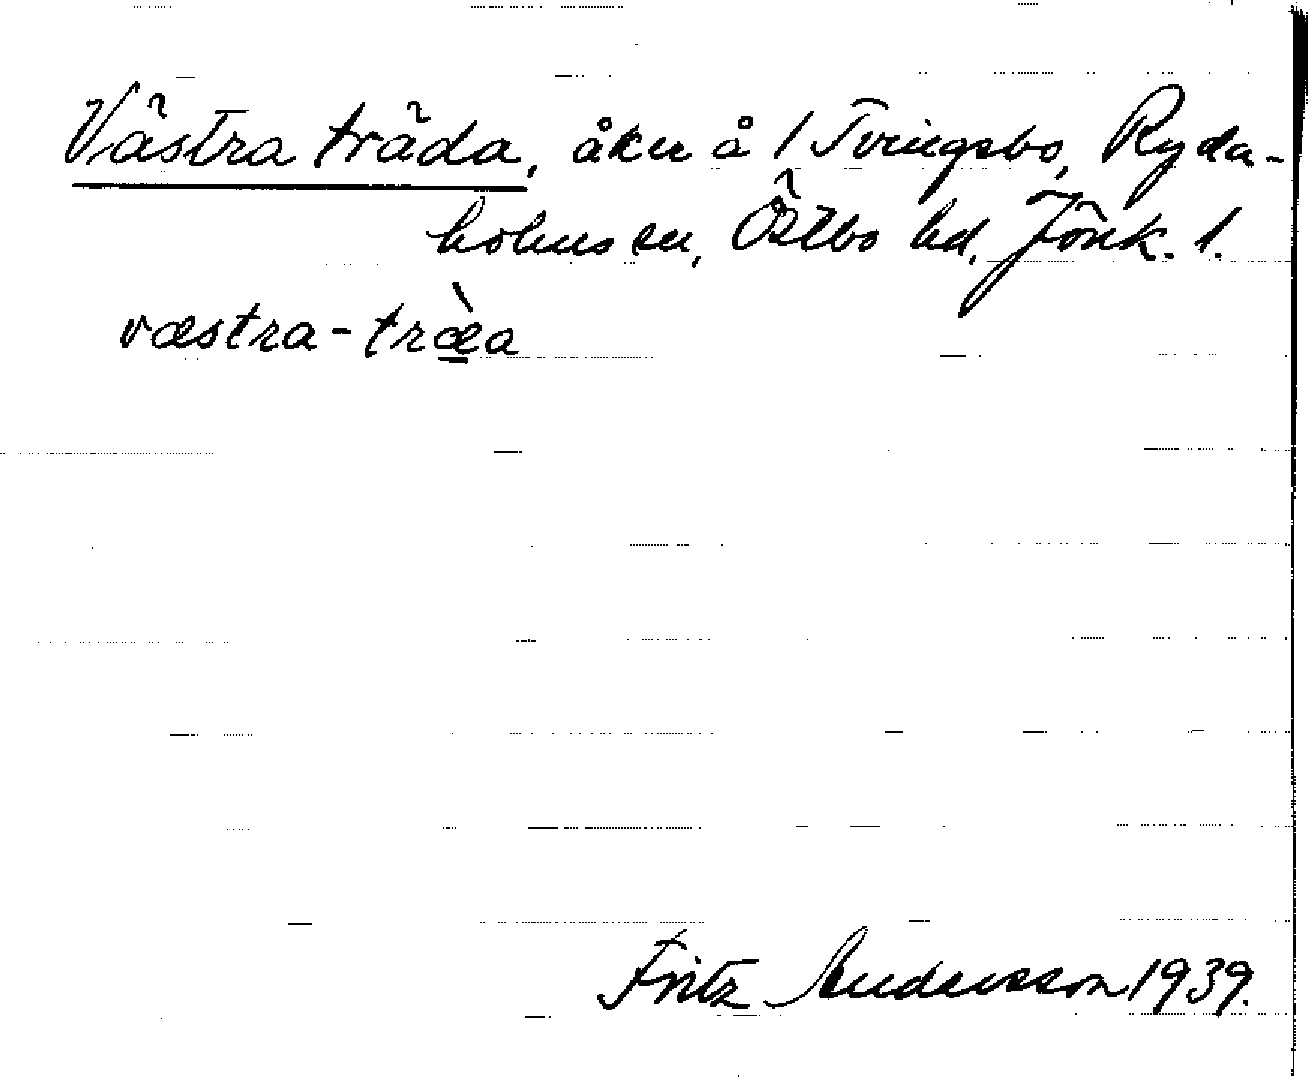 Västra träda, åker å 1 Tvingsbo, Ryda-
holms sn, Östbo hd, Jönk. l.
væstra-træ̀a
Fritz Andersson 1939.